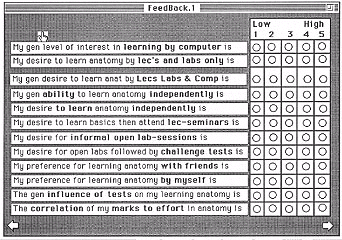 FeedBack.1
Low High
1 2 3 4 5
My gen level of interest in learning by computer is
My desire to learn anatomy by lec's and labs only is
My gen desire to learn anat by Lecs Labs & Comp is
My gen ability to learn anatomy independently is
My desire to learn anatomy independently is
My desire to learn basics then attend lec-seminars is
My desire for informal open lab-sessions is
My desire for open labs followed by challenge tests is
My preference for learning anatomy with friends is
My preference for learning anatomy by myself is
The gen influence of tests on my learning anatomy is
The correlation of my marks to effort in anatomy is